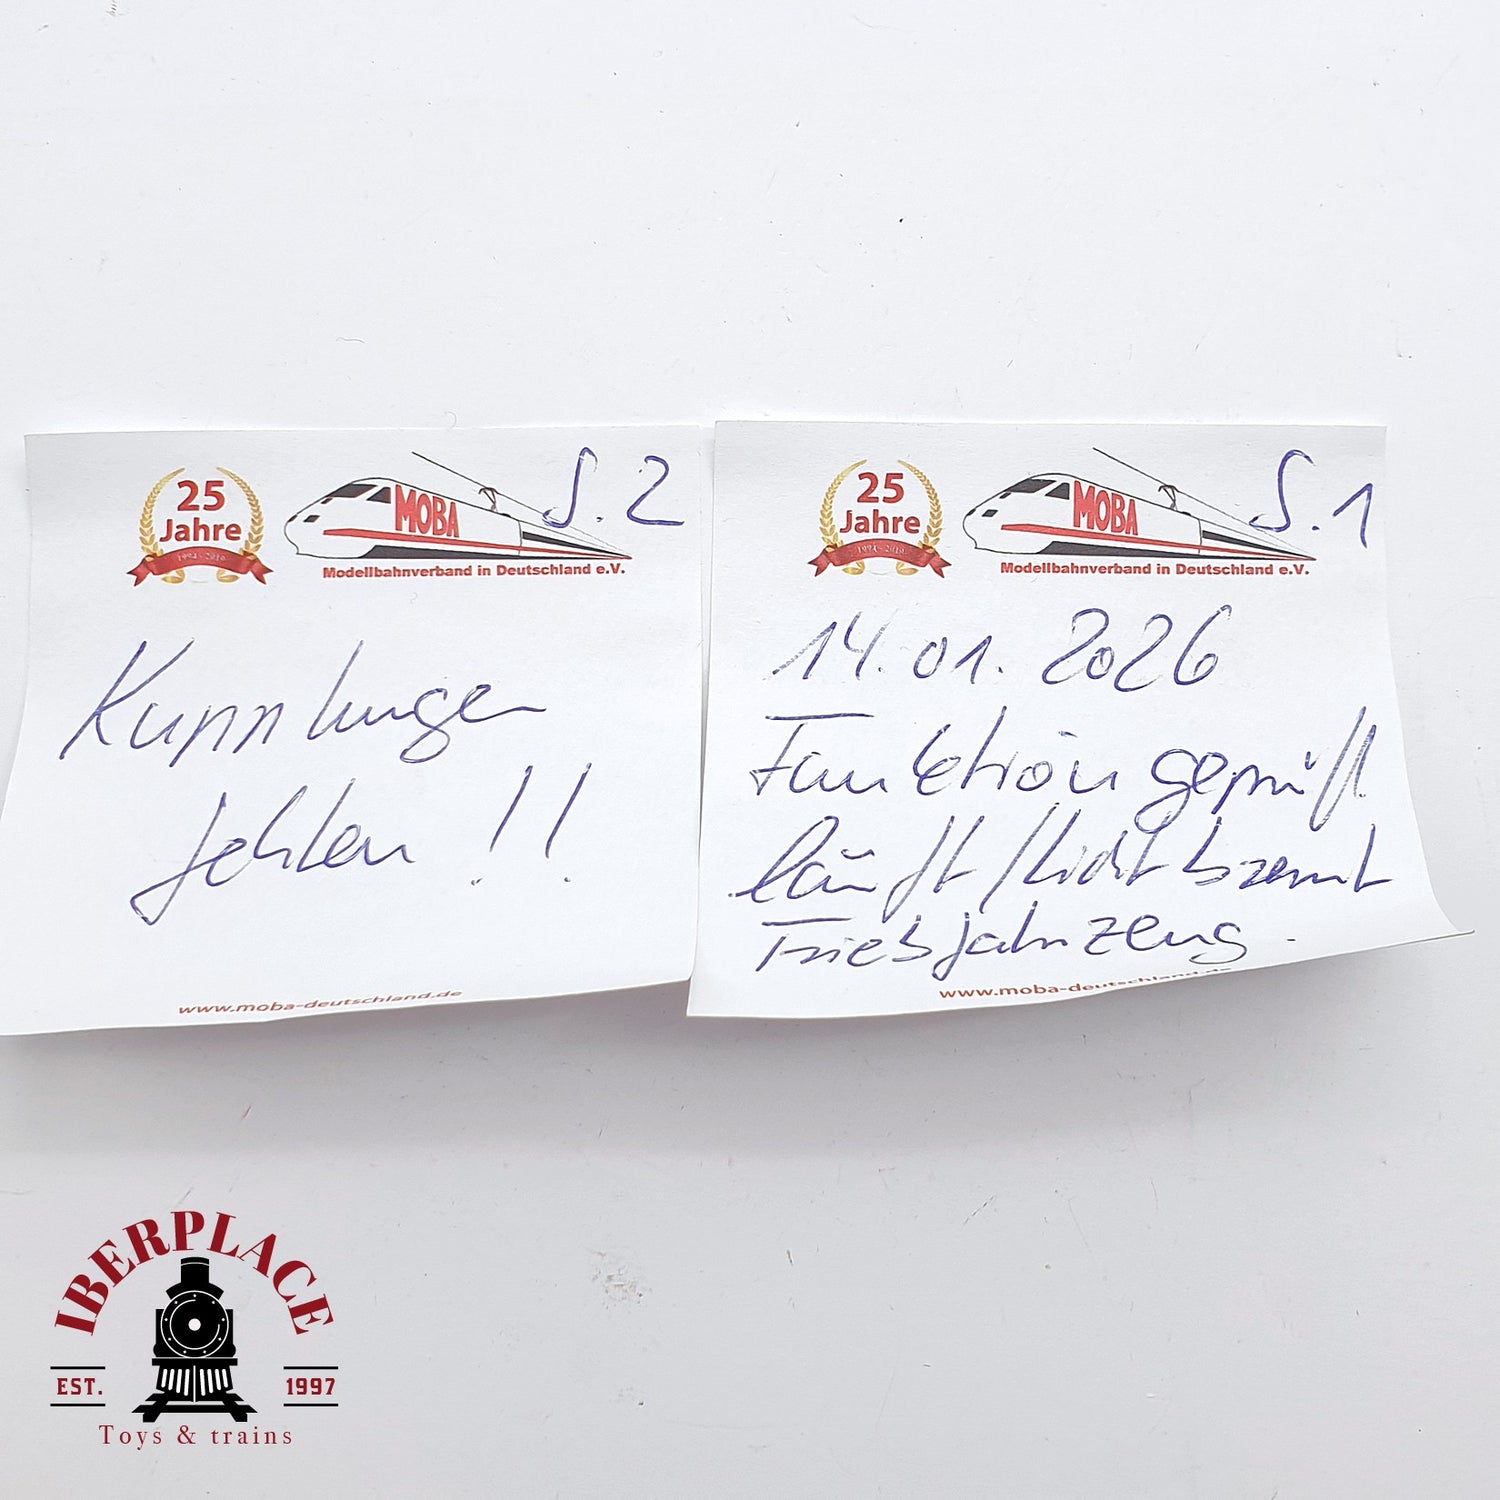 25
Jahre
1994 - 2019
MOBA
S. 2
Modellbahnverband in Deutschland e.V.
Kupplungen
fehlen !!
www.moba-deutschland.de
25
Jahre
1994 - 2019
MOBA
S. 1
Modellbahnverband in Deutschland e.V.
14. 01. 2026
Funktion geprüft
läuft / Licht brennt
Triebfahrzeug
www.moba-deutschland.de
IBERPLACE
EST. 1997
Toys & trains